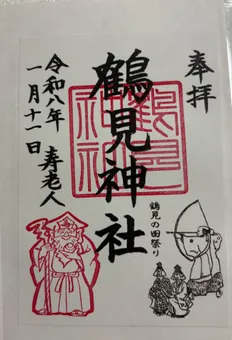 奉拝
鶴見神社
令和八年
一月十一日
寿老人
鶴見の田祭り